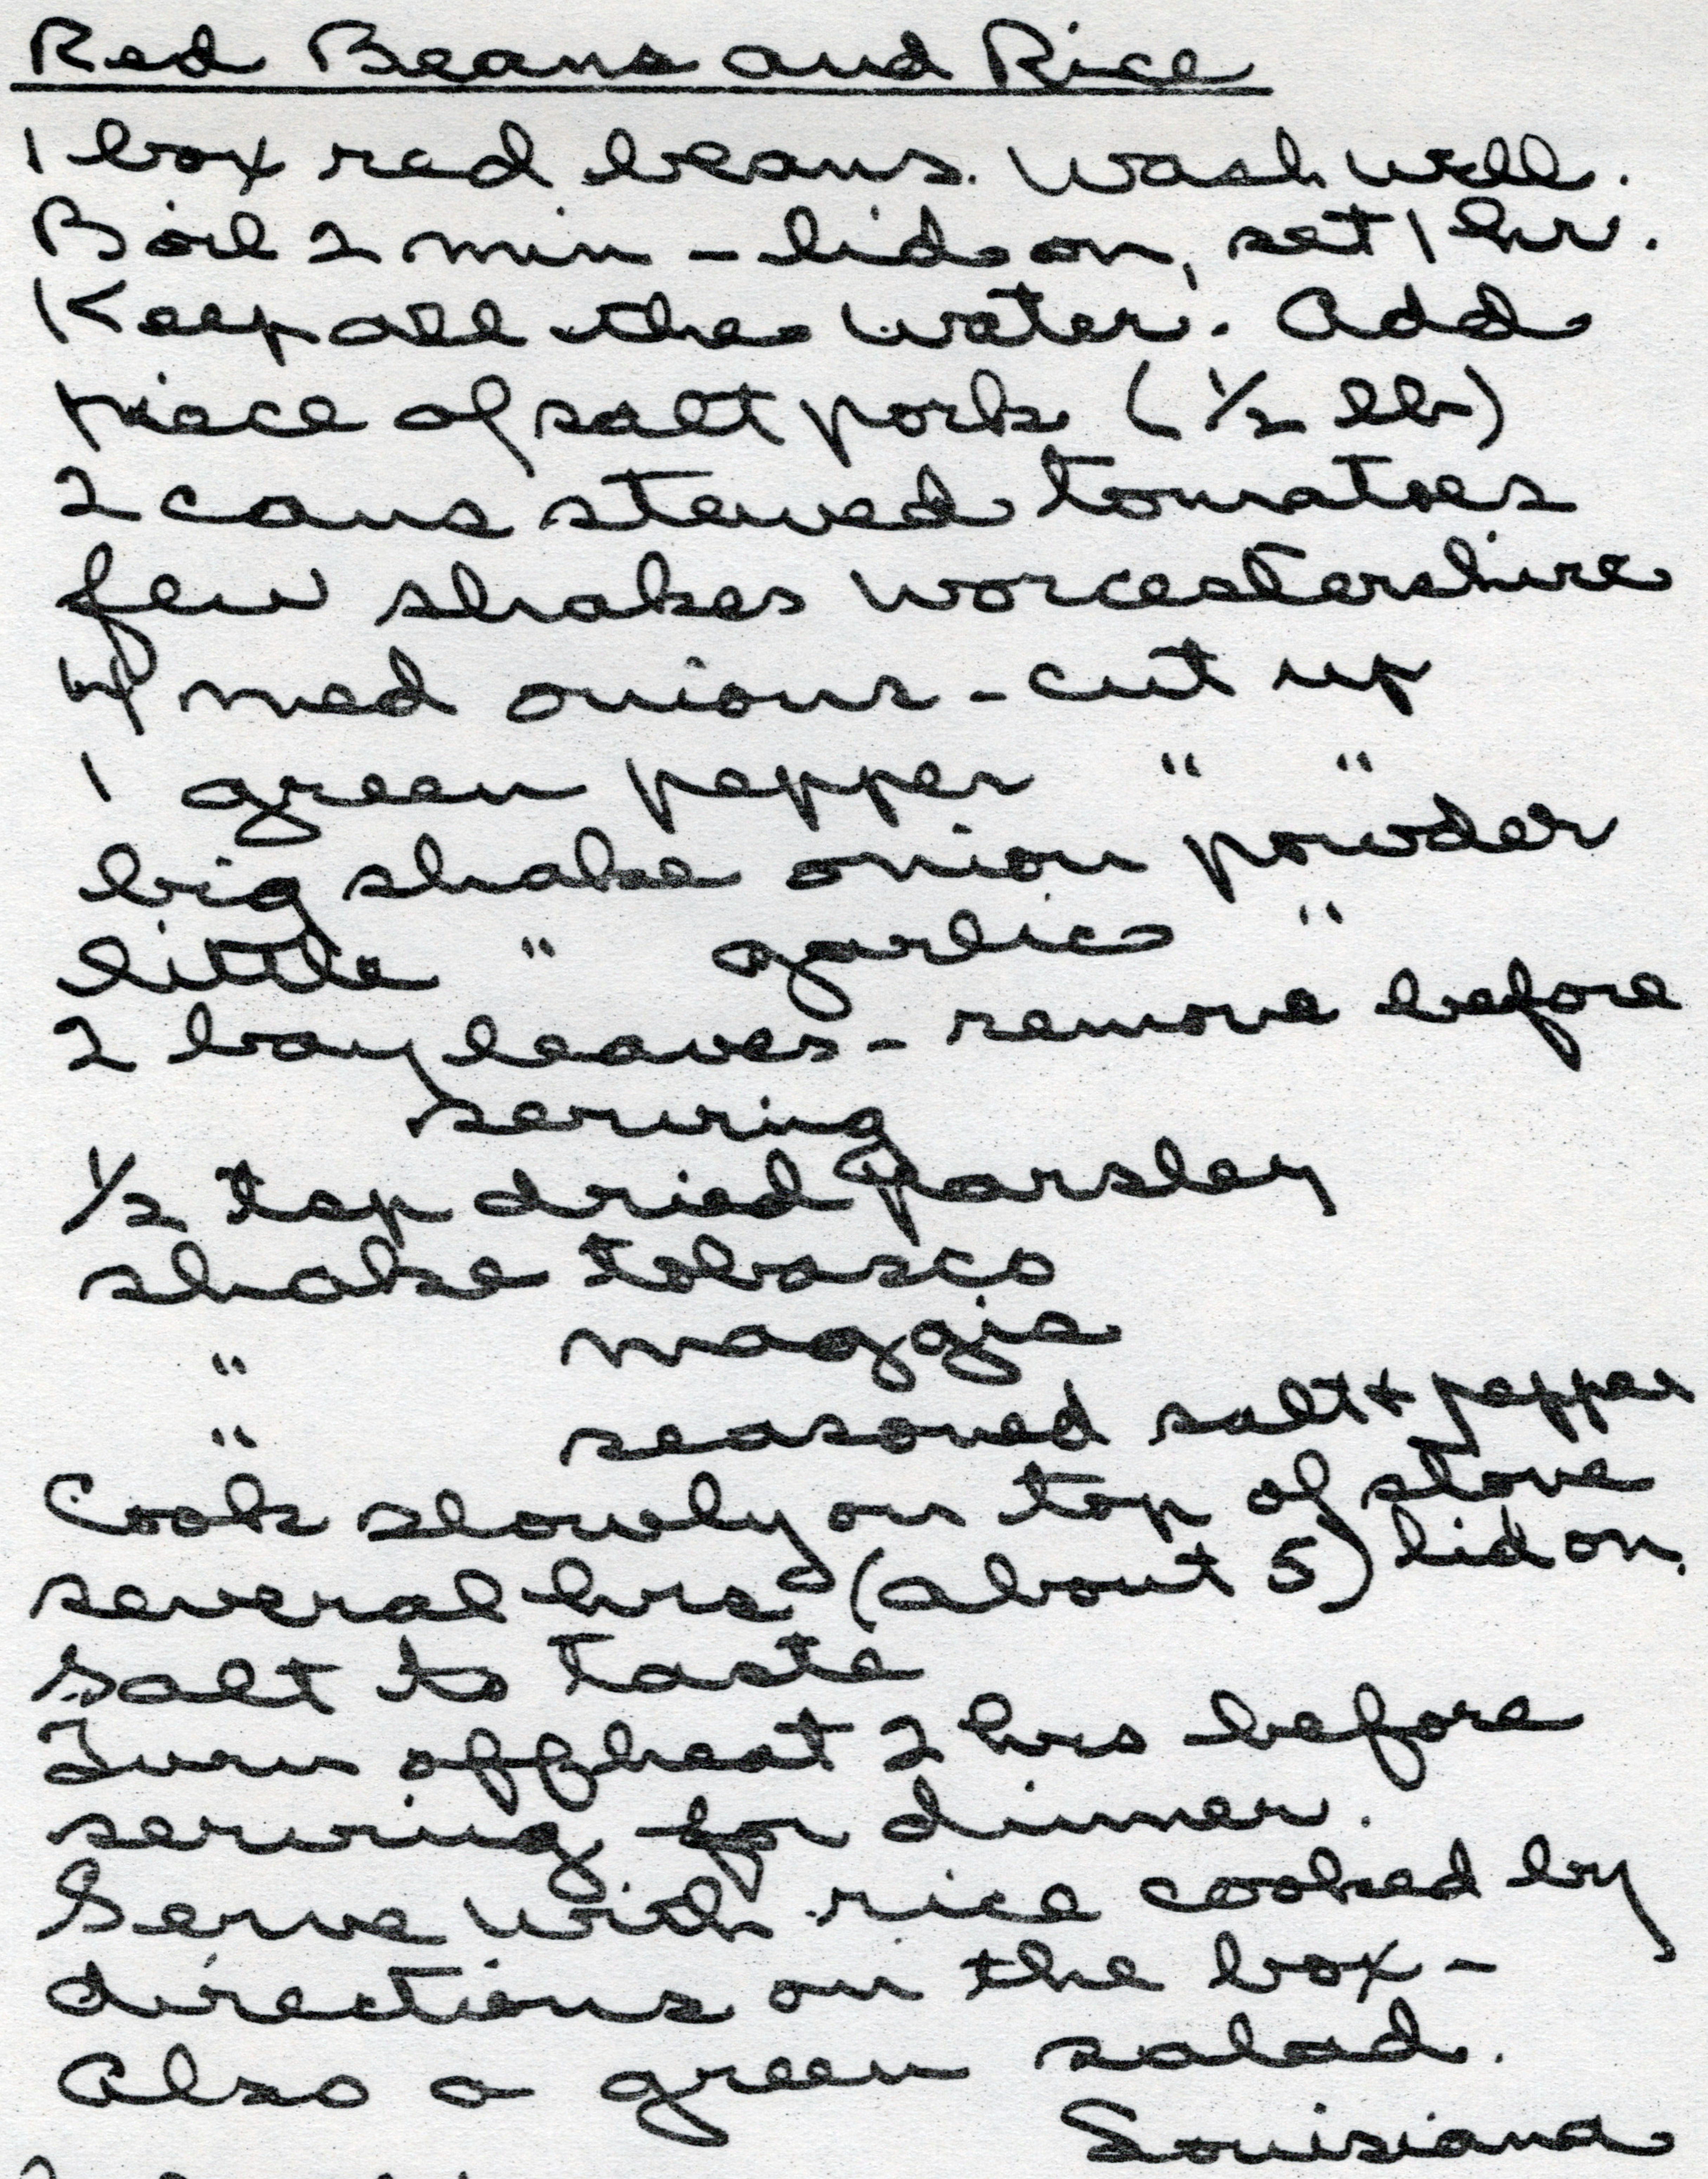 Red Beans and Rice
1 box red beans. Wash well.
Boil 2 min - lid on, set 1 hr.
Keep all the water. Add
piece of salt pork (1/2 lb)
2 cans stewed tomatoes
few shakes worcestershire
4 med onions - cut up
1 green pepper " "
big shake onion powder
little " garlic "
2 bay leaves - remove before
serving
1/2 tsp dried parsley
shake tobasco
" maggie
" seasoned salt + pepper
Cook slowly on top of stove
several hrs (about 5) lid on.
Salt to taste
Turn off heat 2 hrs before
serving for dinner.
Serve with rice cooked by
directions on the box -
Also a green salad.
Louisiana